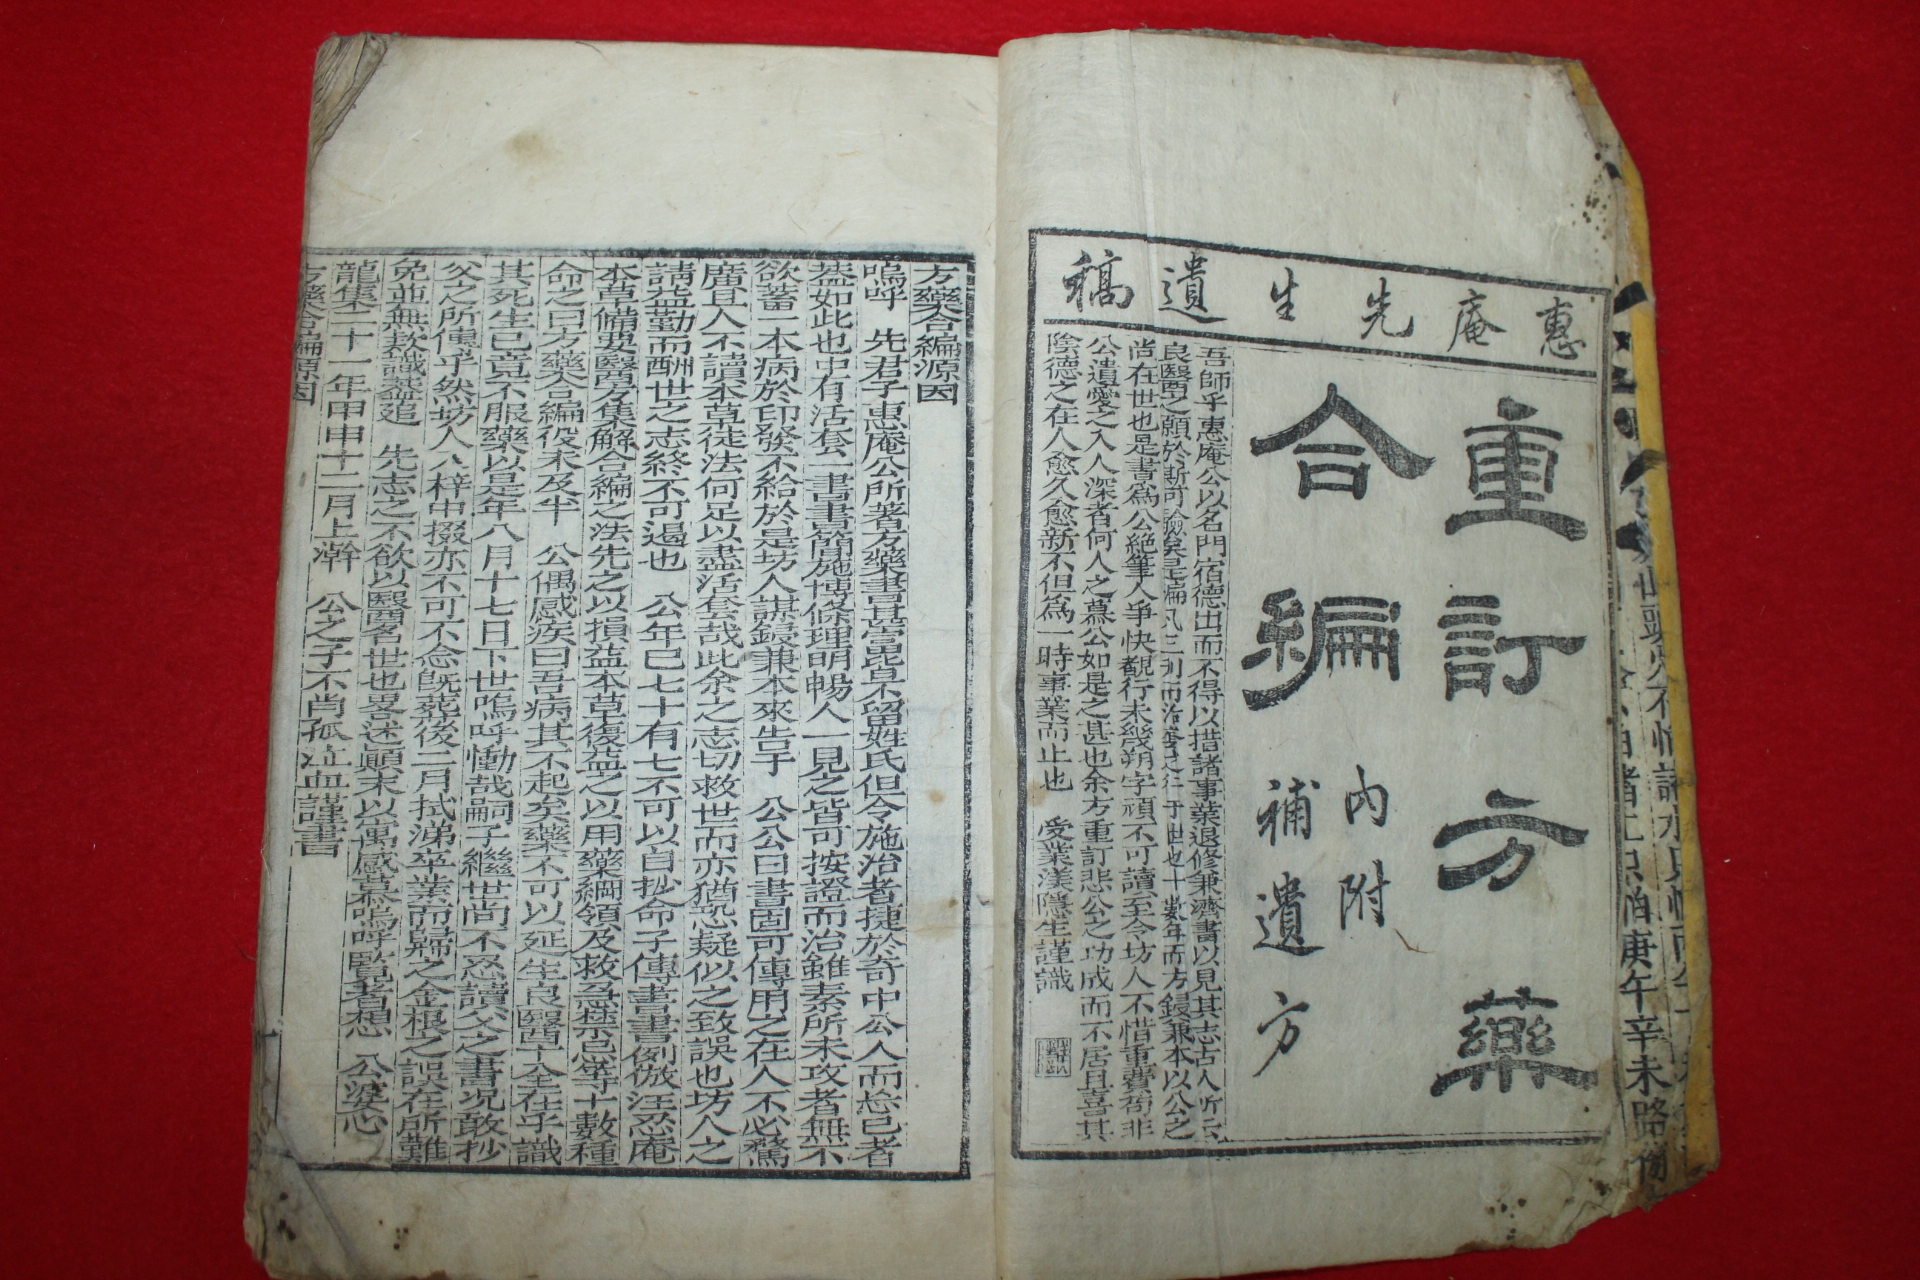 惠庵先生遺稿
重訂方藥
合編
內附
補遺方
吾師乎惠庵公以名門宿德出而不得以措諸事業退修兼濟書以見其志古人所云
良醫之願於斯可驗矣是編凡三刊而洽
于世也十數年而方鋟兼本以公之
尚在世也是書爲公絶筆人爭快覩行未幾朔字頑不可讀至今坊人不惜重費苟非
公遺愛之入人深者何人之慕公如是之甚也余方重訂悲公之功成而不居且喜其
陰德之在人愈久愈新不但爲一時事業而止也 受業漢隱生謹識
方藥合編源因
嗚呼 先君子惠庵公所著方藥書甚蕃毘皆不留姓氏但令施治者捷於奇中公人而忘已者
葢如此也中有活套一書書簡施博條理明暢人一見之皆可按證而治雖素所未攻者無不
欲蓄一本病於印發不給於是坊人謀鋟兼本來告予 公公曰書固可傳用之在人不必驚
廣且人不讀本草徒法何足以盡活套哉此余之志切救世而亦猶恐疑似之致誤也坊人之
請益勤而酬世之志終不可遏也 公年已七十有七不可以自抄命子傳書書例倣汪忍庵
本草備要醫方集解合編之法先之以損益本草復益之以用藥綱領及救急禁忌等十數種
命之曰方藥合編役未及半 公偶感疾曰吾病其不起矣藥不可以延生良醫十全在乎識
其死生已竟不服藥以是年八月十七日下世嗚呼慟哉嗣子繼世尚不忍讀父之書况敢抄
父之所傳乎然坊人入梓中掇亦不可不念旣葬後二月拭涕卒業而歸之金根之誤在所難
免並無敘識葢追 先志之不欲以醫名世也畧述顚末以寓感慕嗚呼覽者想 公婆心
龍集二十一年甲申十二月上澣 公之子不肖孤泣血謹書
方藥合編源因
庚午辛未路